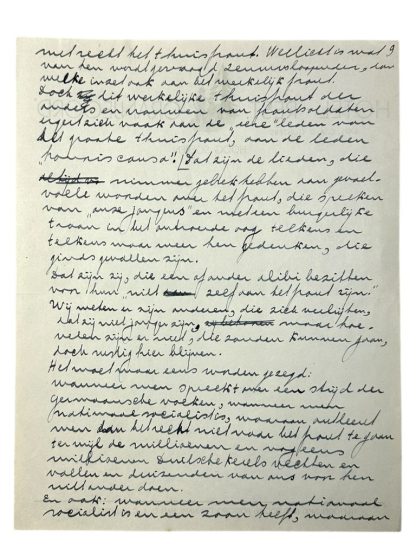 met recht het thuisfront. Wellicht is wat 9
van hen wordt gevraagd zenuwsloopender, dan
welke inzet ook aan het werkelijk front.
Doch dit werkelijke thuisfront der
ouders en vrouwen van frontsoldaten
ergert zich vaak aan de "leden van
het groote thuisfront, aan de leden
„honoris causa". Dat zijn de lieden, die
nimmer gebrek hebben aan gevoel-
volle woorden over het front, die spreken
van „onze jongens" en met een burgerlijke
traan in het ontroerde oog telkens en
telkens maar weer hen gedenken, die
ginds gevallen zijn.
Dat zijn zij, die een of ander alibi bezitten
voor hun „niet zelf aan het front zijn."
Wij weten er zijn anderen, die zich verbijten,
dat zij niet jonger zijn, maar hoe-
velen zijn er niet, die zouden kunnen gaan,
doch rustig hier blijven.
Het moet maar eens worden gezegd:
wanneer men spreekt over een strijd der
germaansche volken, wanneer men
nationaalsocialist is, waaraan ontleent
men het recht niet naar het front te gaan
terwijl de millioenen en nog eens
millioenen Duitsche kerels vechten en
vallen en duizenden van ons voor hen
niet onder doen.
En ook: wanneer men nationaal
socialist is en een zoon heeft, waaraan